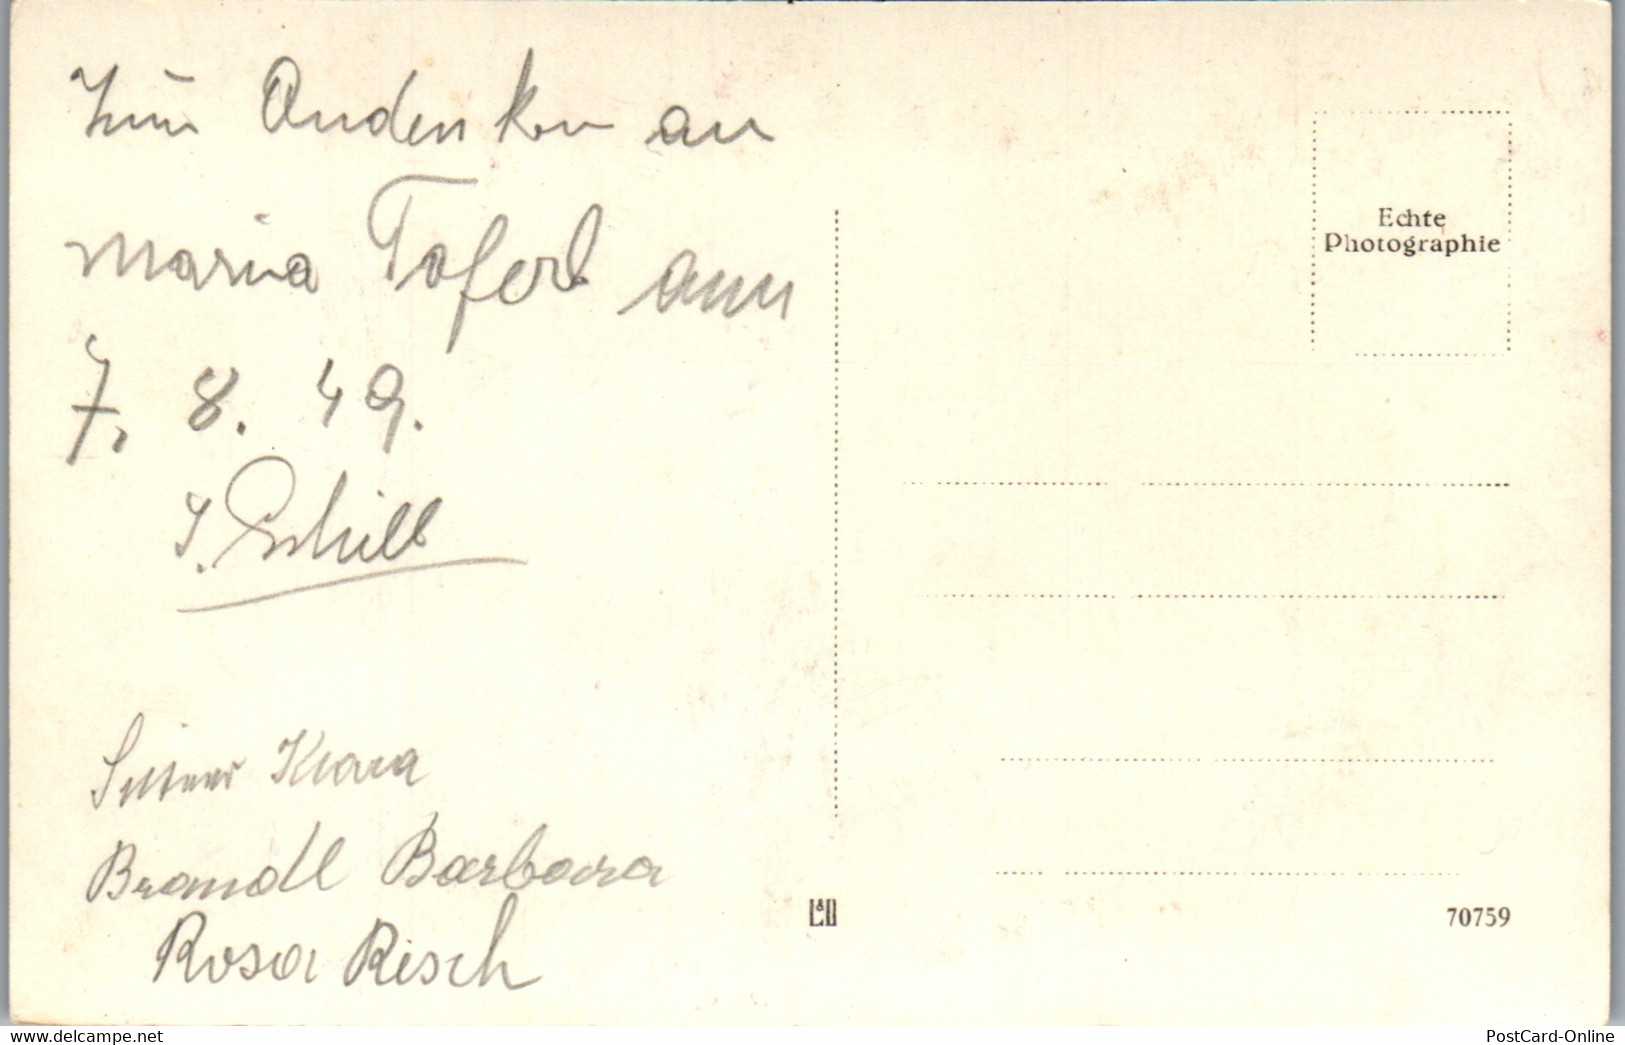 Zum Andenken an
Maria Taferl am
7. 8. 49.
J. Schill
Klara
Brandl Barbara
Rosa Resch
Echte
Photographie
L&D
70759
www.delcampe.net
PostCard-Online